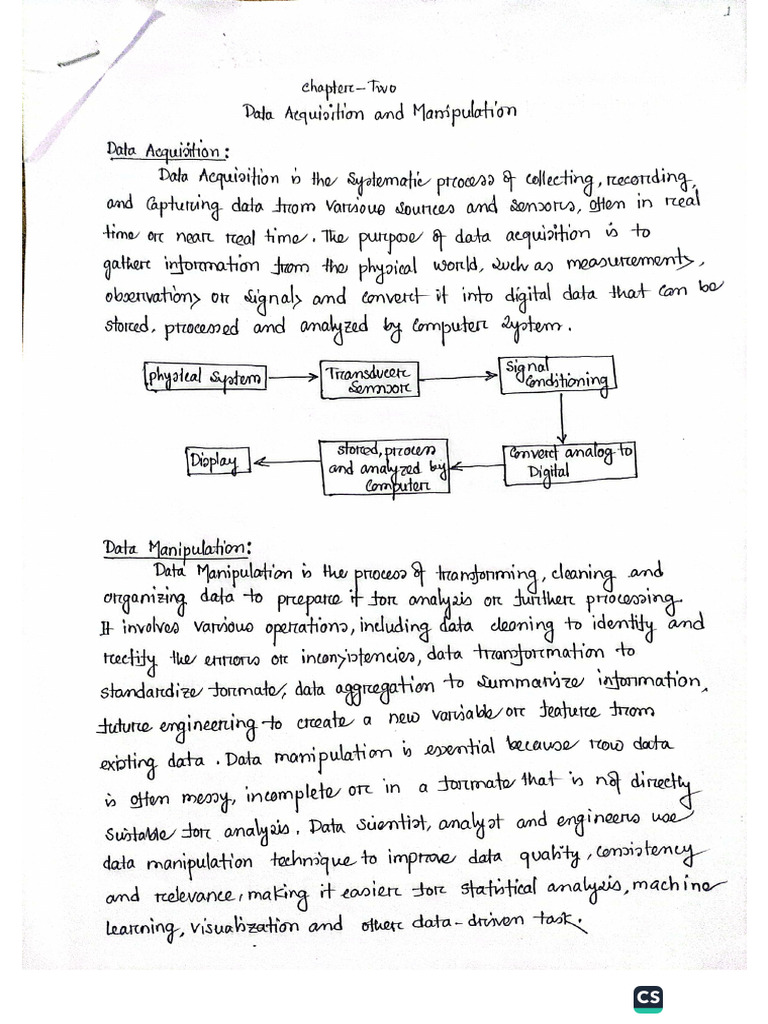 1
Chapter-Two
Data Acquisition and Manipulation
Data Acquisition:
Data Acquisition is the systematic process of collecting, recording,
and capturing data from various sources and sensors, often in real
time or near real time. The purpose of data acquisition is to
gather information from the physical world, such as measurements,
observations or signals and convert it into digital data that can be
stored, processed and analyzed by computer system.
Physical System
Transducer
Sensor
Signal
Conditioning
Convert analog to
Digital
stored, process
and analyzed by
Computer
Display
Data Manipulation:
Data Manipulation is the process of transforming, cleaning and
organizing data to prepare it for analysis or further processing.
It involves various operations, including data cleaning to identify and
rectify the errors or inconsistencies, data transformation to
standardize formate, data aggregation to summarize information,
future engineering to create a new variable or feature from
existing data. Data manipulation is essential because row data
is often messy, incomplete or in a formate that is not directly
suitable for analysis. Data scientist, analyst and engineers use
data manipulation technique to improve data quality, consistency
and relevance, making it easier for statistical analysis, machine
learning, visualization and other data-driven task.
CS